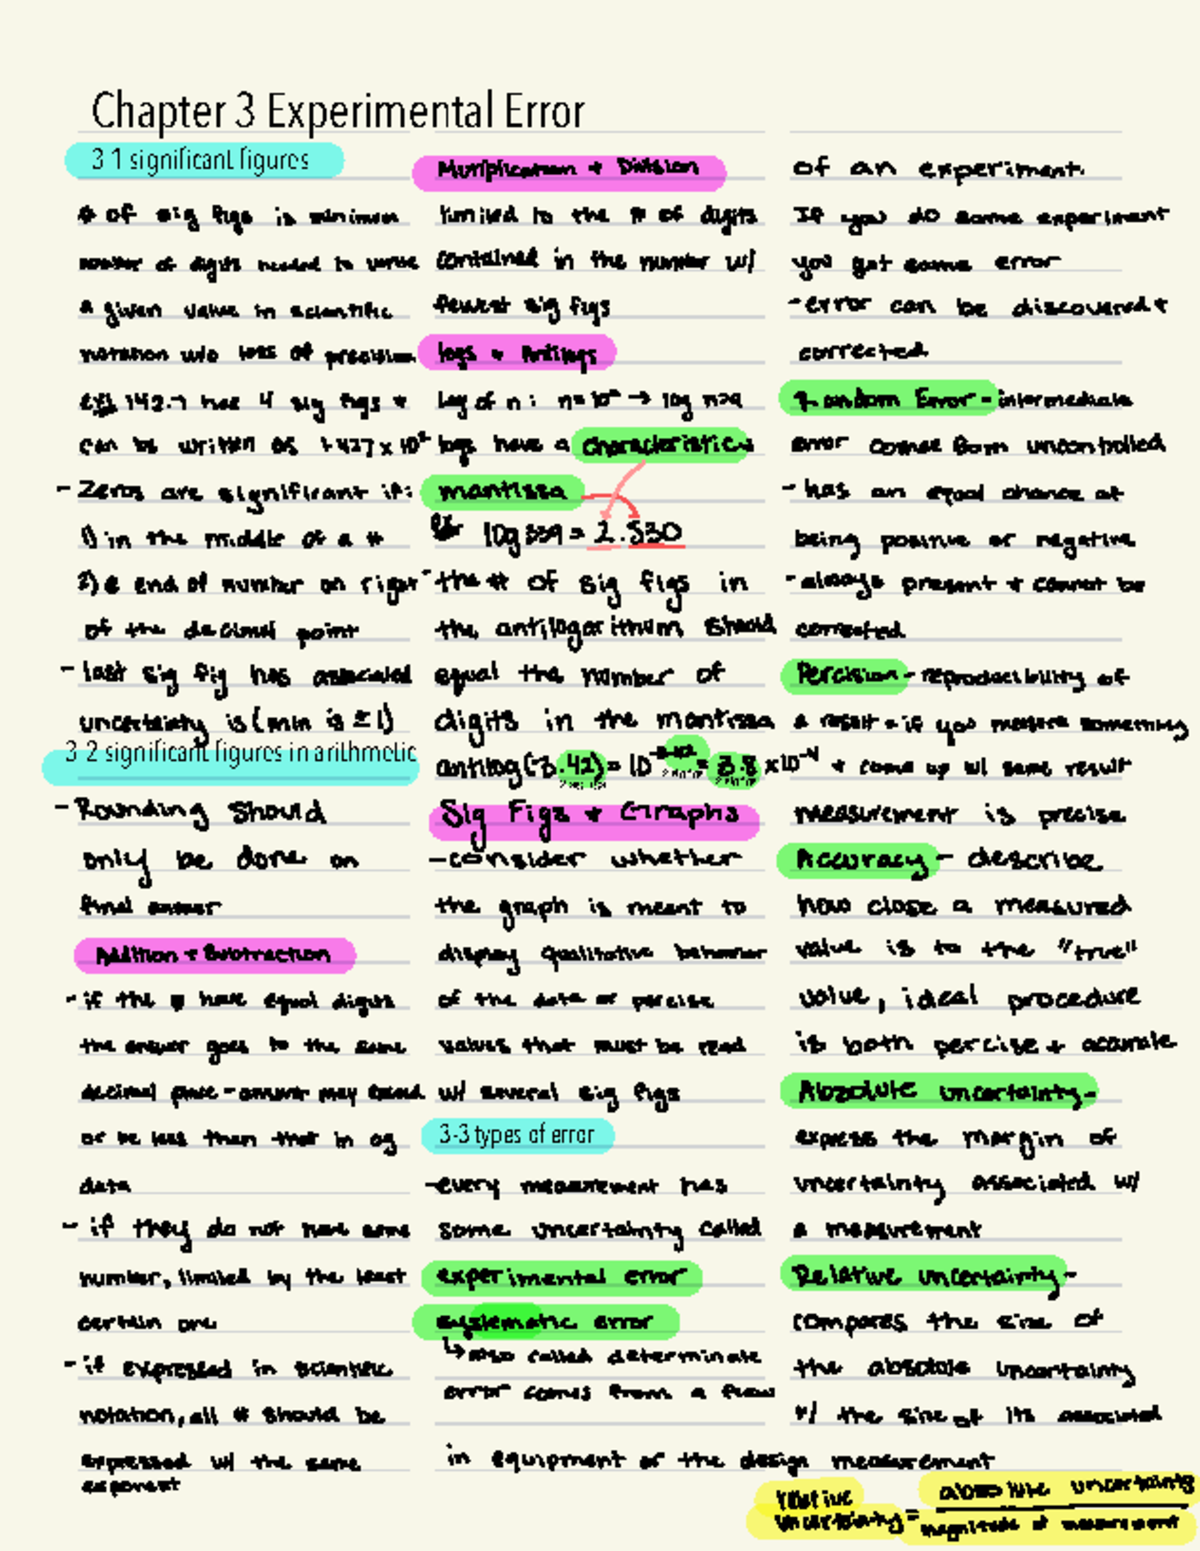 Chapter 3 Experimental Error
3 1 significant figures
# of sig figs is minimum
number of digits needed to write
a given value in scientific
notation w/o loss of precision
ex) 142.7 has 4 sig figs +
can be written as 1.427 x 10²
- Zeros are significant if:
1) in the middle of a #
2) @ end of number on right
of the decimal point
- last sig fig has associated
uncertainty is (min is ± 1)
3 2 significant figures in arithmetic
- Rounding should
only be done on
final answer
Addition + Subtraction
- if the # have equal digits
the answer goes to the same
decimal place - answer may exceed
or be less than that in og
data
- if they do not have same
number, limited by the least
certain one
- if expressed in scientific
notation, all # should be
expressed w/ the same
exponent
Multiplication + Division
limited to the # of digits
contained in the number w/
fewest sig figs
logs + Antilogs
log of n: n=10ᵃ → log n=a
logs have a characteristic +
mantissa
log 339 = 2.530
- the # of sig figs in
the antilogarithum should
equal the number of
digits in the mantissa
antilog (-3.42) = 10⁻³·⁴² = 3.8 x10⁻⁴
Sig Figs + Graphs
- consider whether
the graph is meant to
display qualitative behavior
of the data or percise
values that must be read
w/ several sig figs
3-3 types of error
- every measurement has
some uncertainty called
experimental error
systematic error
↳ also called determinate
error comes from a flaw
in equipment or the design measurement
of an experiment
If you do same experiment
you get same error
- error can be discovered +
corrected
Random Error - intermediate
error comes from uncontrolled
- has an equal chance of
being positive or negative
- always present + cannot be
corrected
Percision - reproducibility of
a result - if you measure something
+ come up w/ same result
measurement is precise
Accuracy - describe
how close a measured
value is to the "true"
value, ideal procedure
is both percise + accurate
Absolute uncertainty -
express the margin of
uncertainty associated w/
a measurement
Relative uncertainty -
compares the size of
the absolute uncertainty
w/ the size of its associated
relative uncertainty = absolute uncertainty
magnitude of measurement